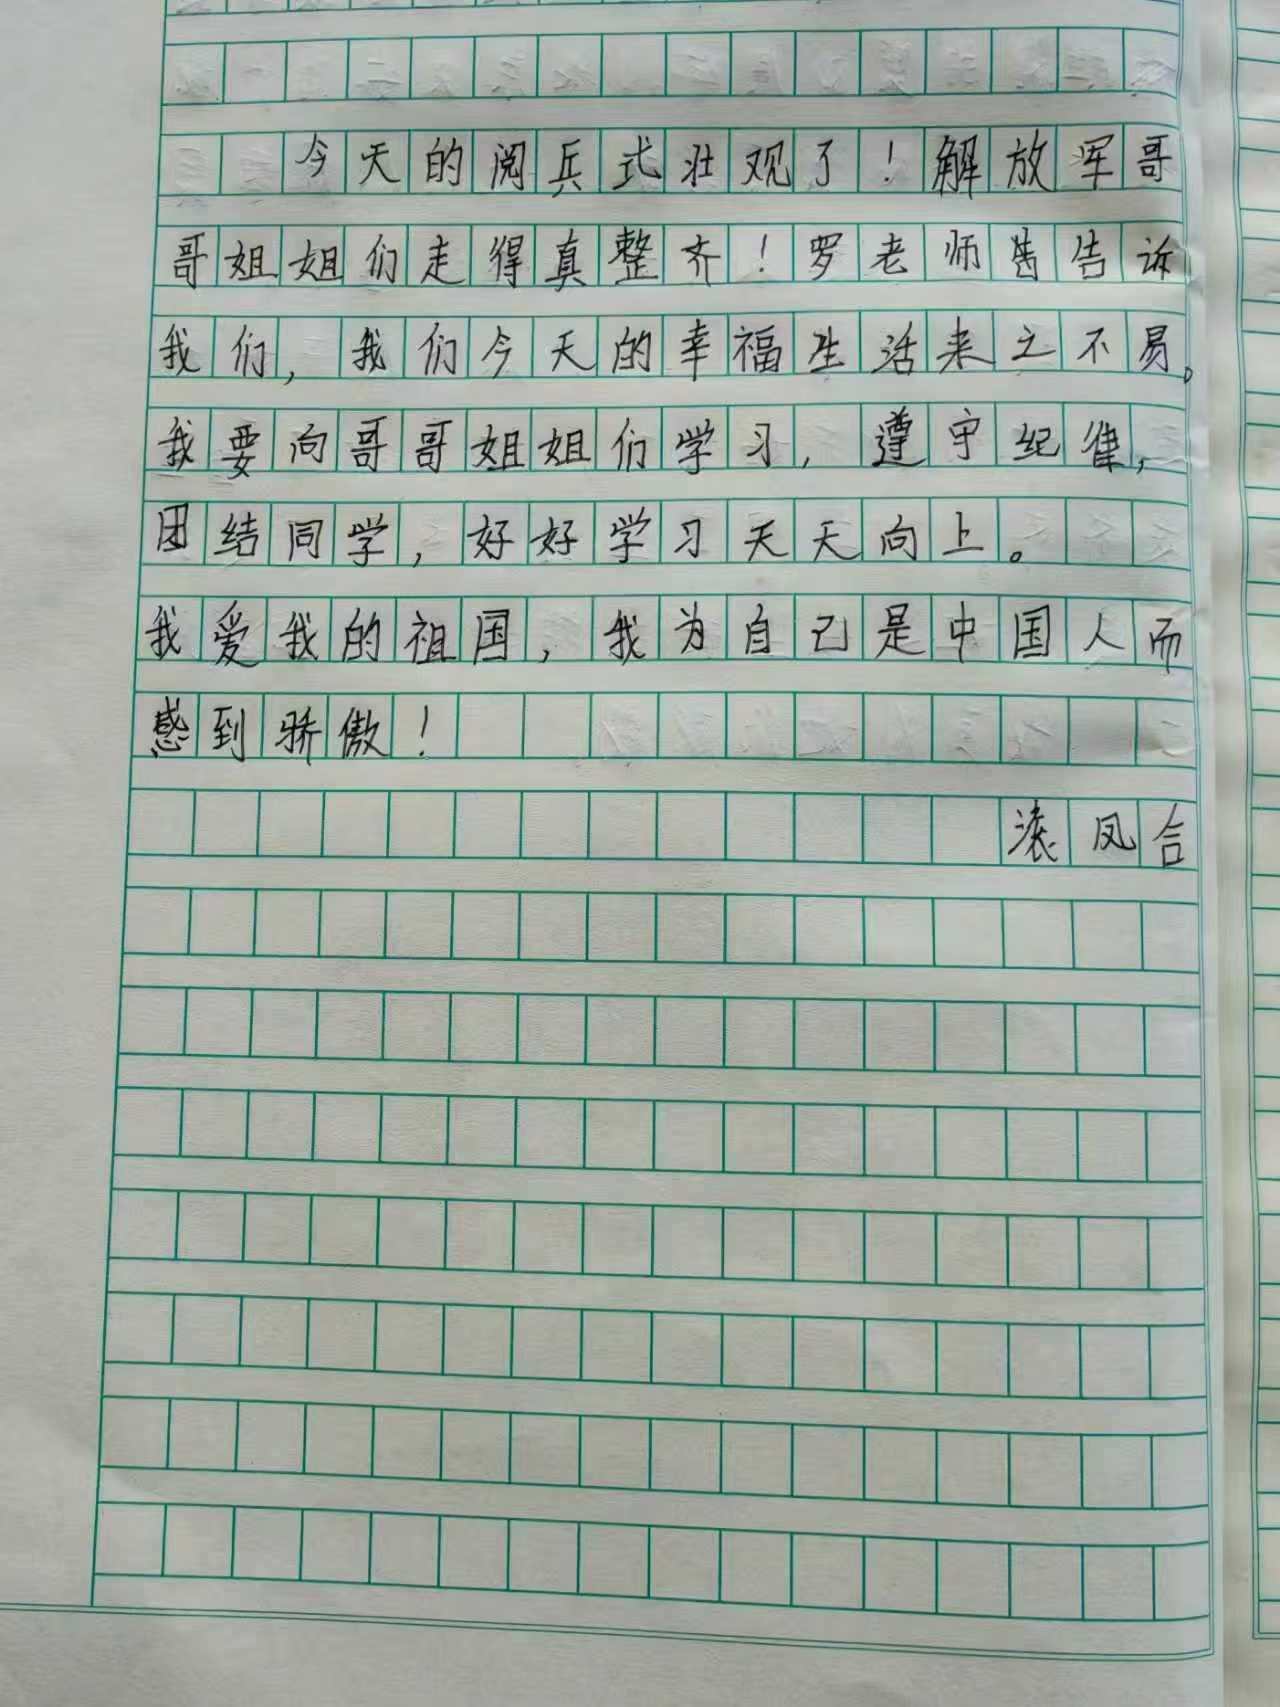 今天的阅兵式壮观了！解放军哥
哥姐姐们走得真整齐！罗老师告诉
我们，我们今天的幸福生活来之不易。
我要向哥哥姐姐们学习，遵守纪律，
团结同学，好好学习天天向上。
我爱我的祖国，我为自己是中国人而
感到骄傲！
滚凤合